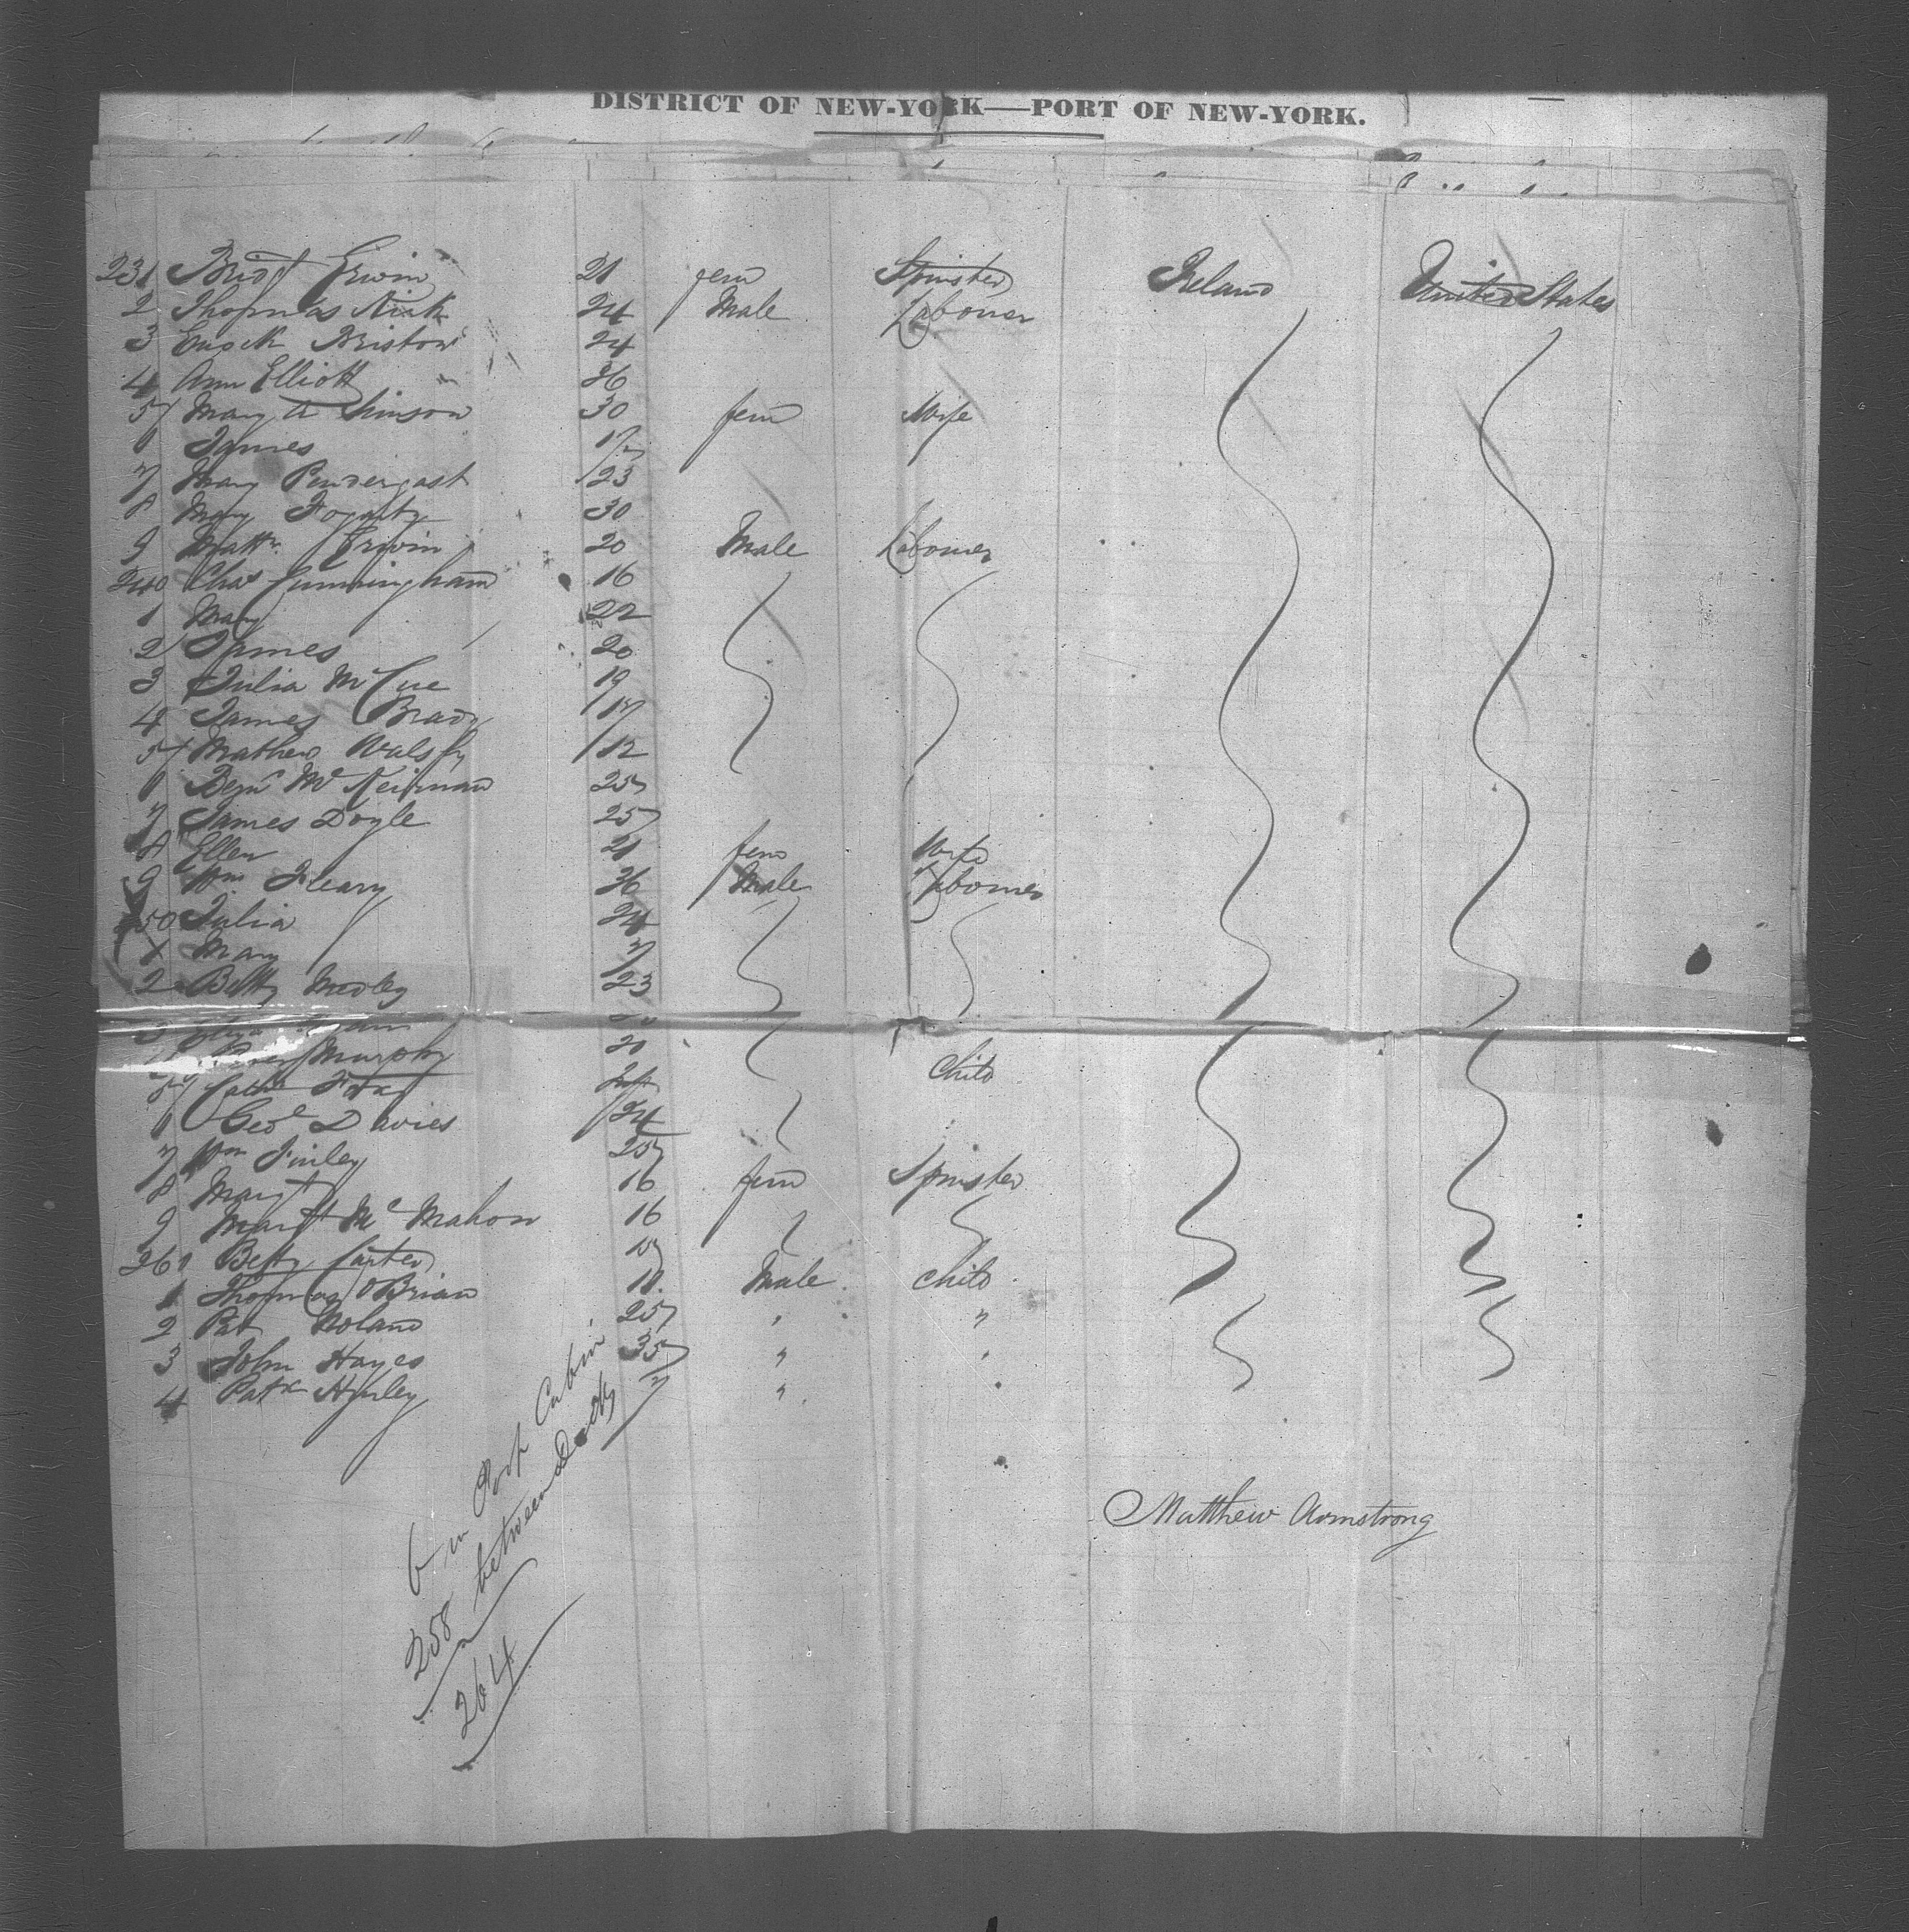 DISTRICT OF NEW-YORK—PORT OF NEW-YORK.
231 Bridt Erwin 21 fem Spinster Ireland United States
2 Thomas Kirk 24 Male Labourer
3 Enock Bristow 24
4 Ann Elliott 36
5 Mary A 30 fem Wife
6 James
7 Mary Pendergast 23
8 Mary Fogarty 30
9 Matth Erwin 20 Male Labourer
240 Chas Cunningham 16
1 Mary 22
2 James 20
3 Julia McCue 19
4 James Brady
5 Mathew Walsh 12
6 Benj McKeirnan 25
7 James Doyle 25
8 Ellen 21 fem Wife
9 Wm Fleary 36 Male Labourer
250 Julia 24
1 Mary 7
2 Betty Medley 23
3
Murphy 20 Child
5 Cathe Fox
6 Geo Davies 24
7 Wm Finley 25
8 Margt 16 fem Spinster
9 Margt McMahon 16
260 Betty Carter
1 Thomas OBrian 11. Male Child
2 Pat Noland 25 " "
3 John Hayes 35 " "
4 Patk Hurley 7 " "
6 in Poop Cabin
258 between Decks
264
Matthew Armstrong